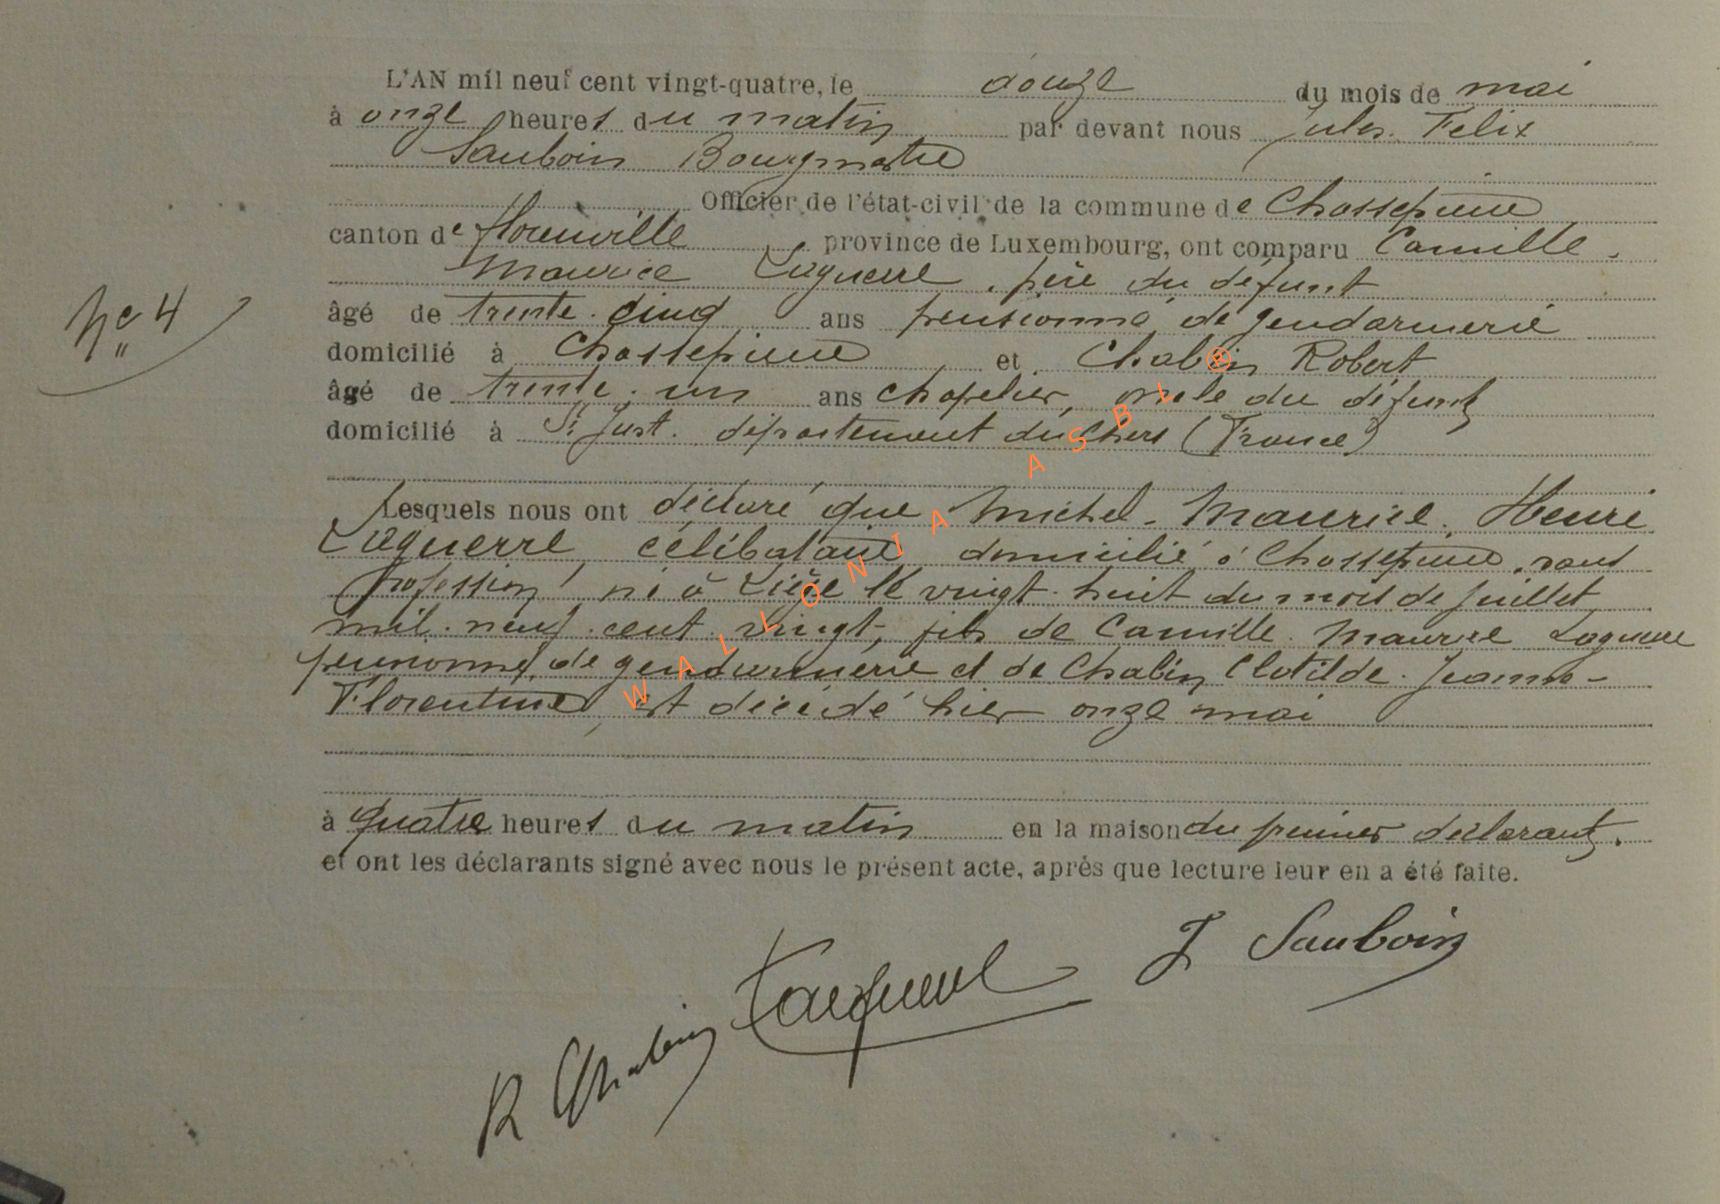 L'AN mil neuf cent vingt-quatre, le douze du mois de mai
à onze heures du matin par devant nous Jules. Felix
Sauboin Bourgmestre
Officier de l'état-civil de la commune de Chassepierre
canton de Florenville province de Luxembourg, ont comparu Camille.
Maurice Laguerre, père du défunt
âgé de trente. cinq ans pensionné de gendarmerie
domicilié à Chassepierre et Chabin Robert
âgé de trente. un ans chapelier, oncle du défunt
domicilié à St Just. département du Chers (France)
Lesquels nous ont déclaré que Michel. Maurice. Henri
Laguerre célibataire domicilié à Chassepierre, sans
profession, né à Liège le vingt. huit du mois de juillet
mil. neuf. cent. vingt, fils de Camille. Maurice Laguerre
pensionné, de gendarmerie et de Chabin Clotilde. Jeanne-
Florentine, est décédé hier onze mai
à quatre heures du matin en la maison du premier déclarant.
et ont les déclarants signé avec nous le présent acte, après que lecture leur en a été faite.
No 4
R Chabin Laguerre J Sauboin
WALLONIA ASBL